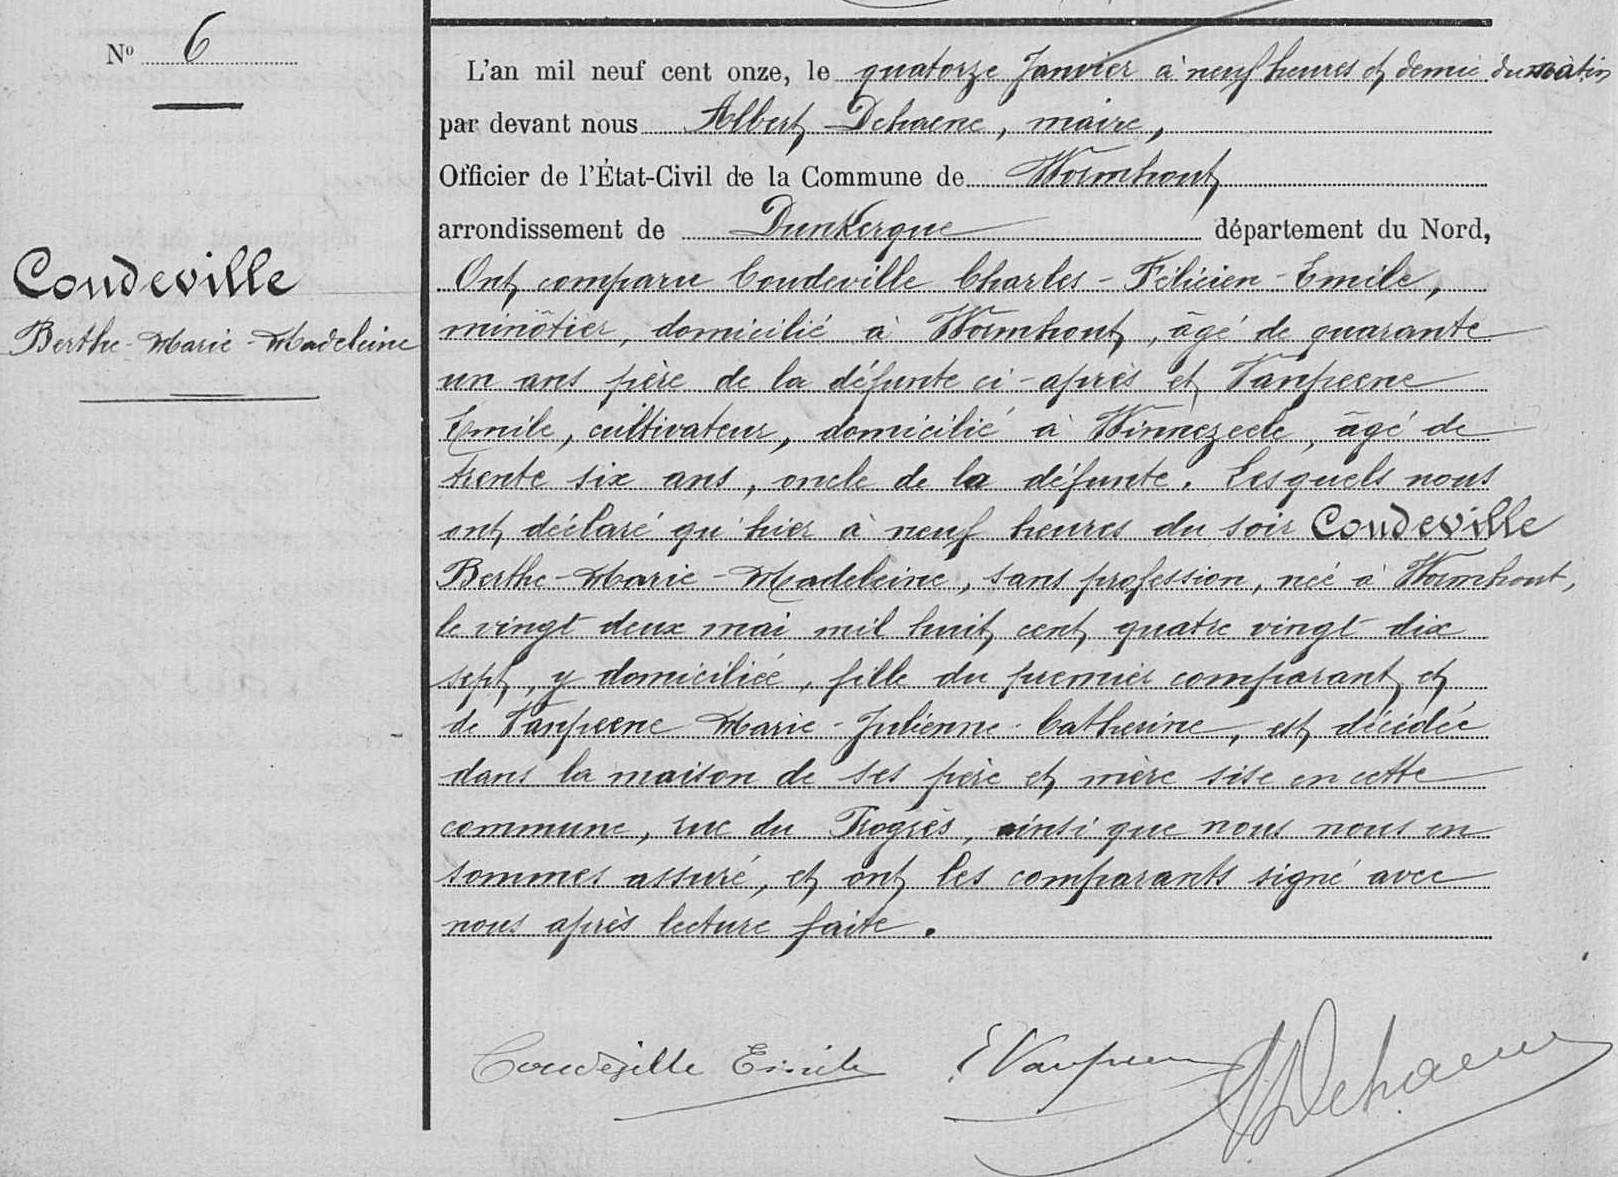 N° 6
Coudeville
Berthe-Marie-Madeleine
L'an mil neuf cent onze, le quatorze Janvier à neuf heures et demie du matin
par devant nous Albert Dehaene, maire,
Officier de l'État-Civil de la Commune de Wormhout
arrondissement de Dunkerque département du Nord,
Ont comparu Coudeville Charles-Félicien-Emile,
minôtier, domicilié à Wormhout, âgé de quarante
un ans père de la défunte ci-après et Vanpeene
Emile, cultivateur, domicilié à Winnezeele, âgé de
trente six ans, oncle de la défunte. Lesquels nous
ont déclaré qu'hier à neuf heures du soir Coudeville
Berthe-Marie-Madeleine, sans profession, née à Wormhout,
le vingt deux mai mil huit cent quatre vingt dix
sept, y domiciliée, fille du premier comparant et
de Vanpeene Marie-Julienne-Catherine, est décédée
dans la maison de ses père et mère sise en cette
commune, rue du Progrès, ainsi que nous nous en
sommes assuré, et ont les comparants signé avec
nous après lecture faite.
Coudeville Emile E Vanpeene A Dehaene